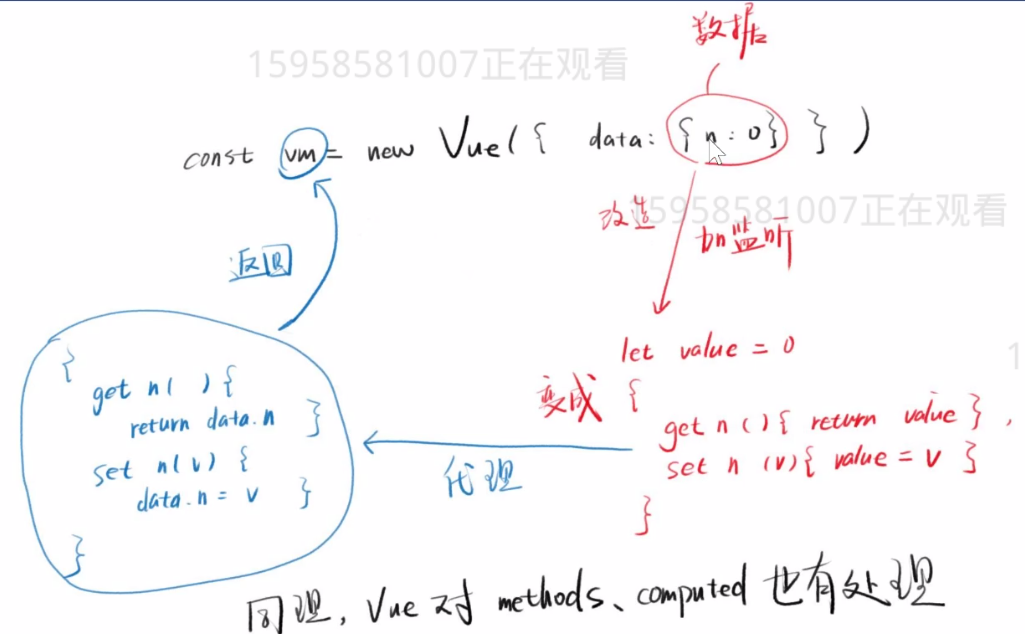 数据
15958581007正在观看
const vm = new Vue({ data: { n : 0 } } )
15958581007正在观看
改造 加监听
返回
let value = 0
1
变成 {
get n ( ) { return value } ,
set n (v) { value = v }
}
代理
{
get n( ) {
return data.n }
set n( v ) {
data.n = v }
}
同理, Vue 对 methods、computed 也有处理